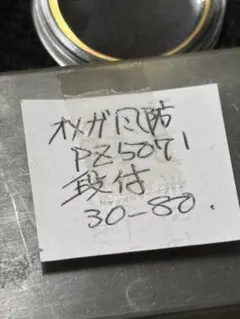 オメガ風防
PZ5071
段付
30-80.